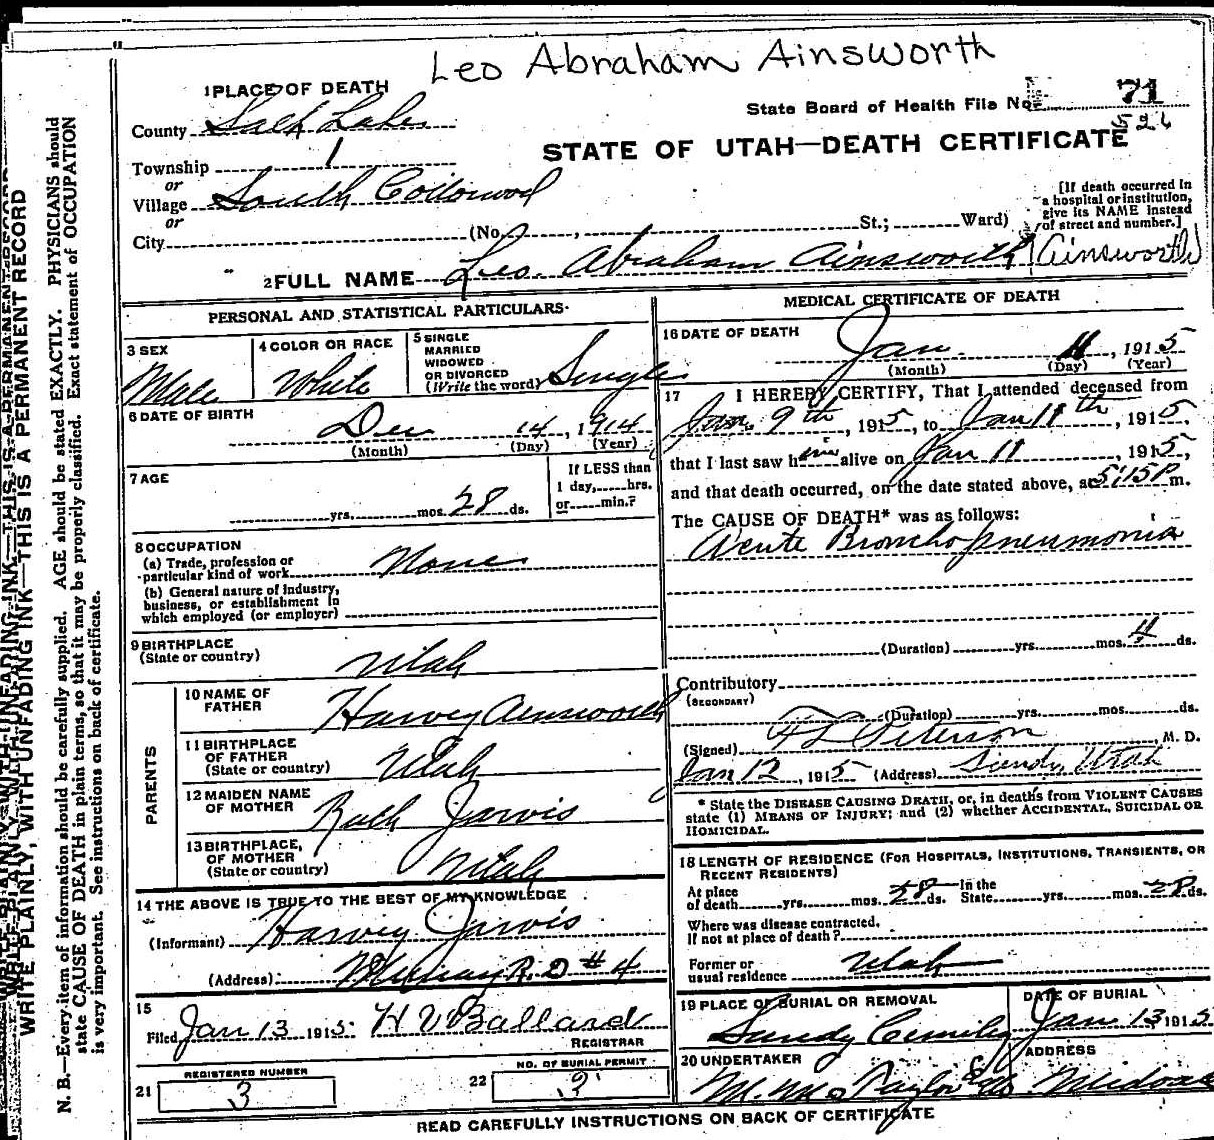 Leo Abraham Ainsworth
1 PLACE OF DEATH
State Board of Health File No. 71
526
County Salt Lake
STATE OF UTAH—DEATH CERTIFICATE
Township 1
or
Village South Cottonwood
or
City (No. , St.; Ward)
[If death occurred in a hospital or institution, give its NAME instead of street and number.]
2 FULL NAME Leo. Abraham Ainsworth (Ainsworth)
PERSONAL AND STATISTICAL PARTICULARS
3 SEX Male
4 COLOR OR RACE White
5 SINGLE MARRIED WIDOWED OR DIVORCED (Write the word) Single
6 DATE OF BIRTH
Dec 14, 1914
(Month) (Day) (Year)
7 AGE
yrs. mos. 28 ds.
If LESS than 1 day, hrs. or min.?
8 OCCUPATION
(a) Trade, profession or particular kind of work None
(b) General nature of industry, business, or establishment in which employed (or employer)
9 BIRTHPLACE (State or country) Utah
PARENTS
10 NAME OF FATHER Harvey Ainsworth
11 BIRTHPLACE OF FATHER (State or country) Utah
12 MAIDEN NAME OF MOTHER Ruth Jarvis
13 BIRTHPLACE OF MOTHER (State or country) Utah
14 THE ABOVE IS TRUE TO THE BEST OF MY KNOWLEDGE
(Informant) Harvey Jarvis
(Address) Murray R. D # 4
15
Filed Jan 13 1915 H V Ballard
REGISTRAR
REGISTERED NUMBER
21 3
NO. OF BURIAL PERMIT
22 3
MEDICAL CERTIFICATE OF DEATH
16 DATE OF DEATH
Jan. 11, 1915
(Month) (Day) (Year)
17 I HEREBY CERTIFY, That I attended deceased from
Jan. 9th, 1915, to Jan 11th, 1915,
that I last saw him alive on Jan 11, 1915,
and that death occurred, on the date stated above, at 5:15 P m.
The CAUSE OF DEATH* was as follows:
Acute Bronchopneumonia
(Duration) yrs. mos. 4 ds.
Contributory
(SECONDARY)
(Duration) yrs. mos. ds.
(Signed) Peterson, M. D.
Jan 12, 1915 (Address) Sandy, Utah
* State the DISEASE CAUSING DEATH, or, in deaths from VIOLENT CAUSES
state (1) MEANS OF INJURY; and (2) whether ACCIDENTAL, SUICIDAL OR
HOMICIDAL.
18 LENGTH OF RESIDENCE (FOR HOSPITALS, INSTITUTIONS, TRANSIENTS, OR
RECENT RESIDENTS)
At place of death yrs. mos. 28 ds. In the State yrs. mos. 28 ds.
Where was disease contracted,
If not at place of death?
Former or usual residence Utah
19 PLACE OF BURIAL OR REMOVAL
DATE OF BURIAL
Sandy Jan 13 1915
20 UNDERTAKER
ADDRESS
Taylor Midvale
READ CAREFULLY INSTRUCTIONS ON BACK OF CERTIFICATE
WRITE PLAINLY, WITH UNFADING INK—THIS IS A PERMANENT RECORD
N. B.—Every item of information should be carefully supplied. AGE should be stated EXACTLY. PHYSICIANS should
state CAUSE OF DEATH in plain terms, so that it may be properly classified. Exact statement of OCCUPATION
is very important. See instructions on back of certificate.